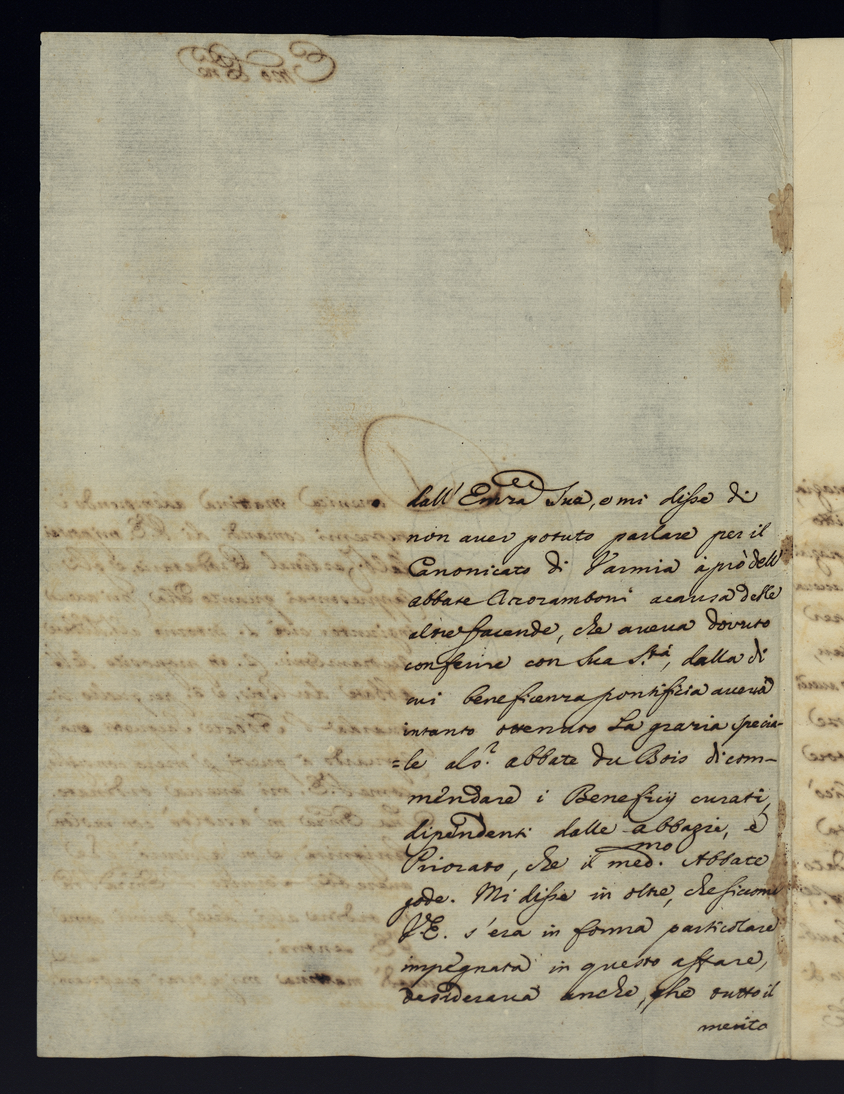 dall' Em̃za Sua, e mi disse di
non aver potuto parlare per il
Canonicato di Varmia à prò dell'
abbate Accoramboni a causa delle
altre facende, che aveva dovuto
conferire con Sua S.tà, dalla di
cui beneficenza pontificia aveva
intanto ottenuto La grazia specia-
=le al S.r abbate du Bois di com-
mendare i Beneficij curati,
dipendenti dalle abbazie, e
Priorato, che il med.mo Abbate
gode. Mi disse in oltre, che siccome
V.E. s'era in forma particolare
impegnata in questo affare,
desiderava anche, che tutto il
merito